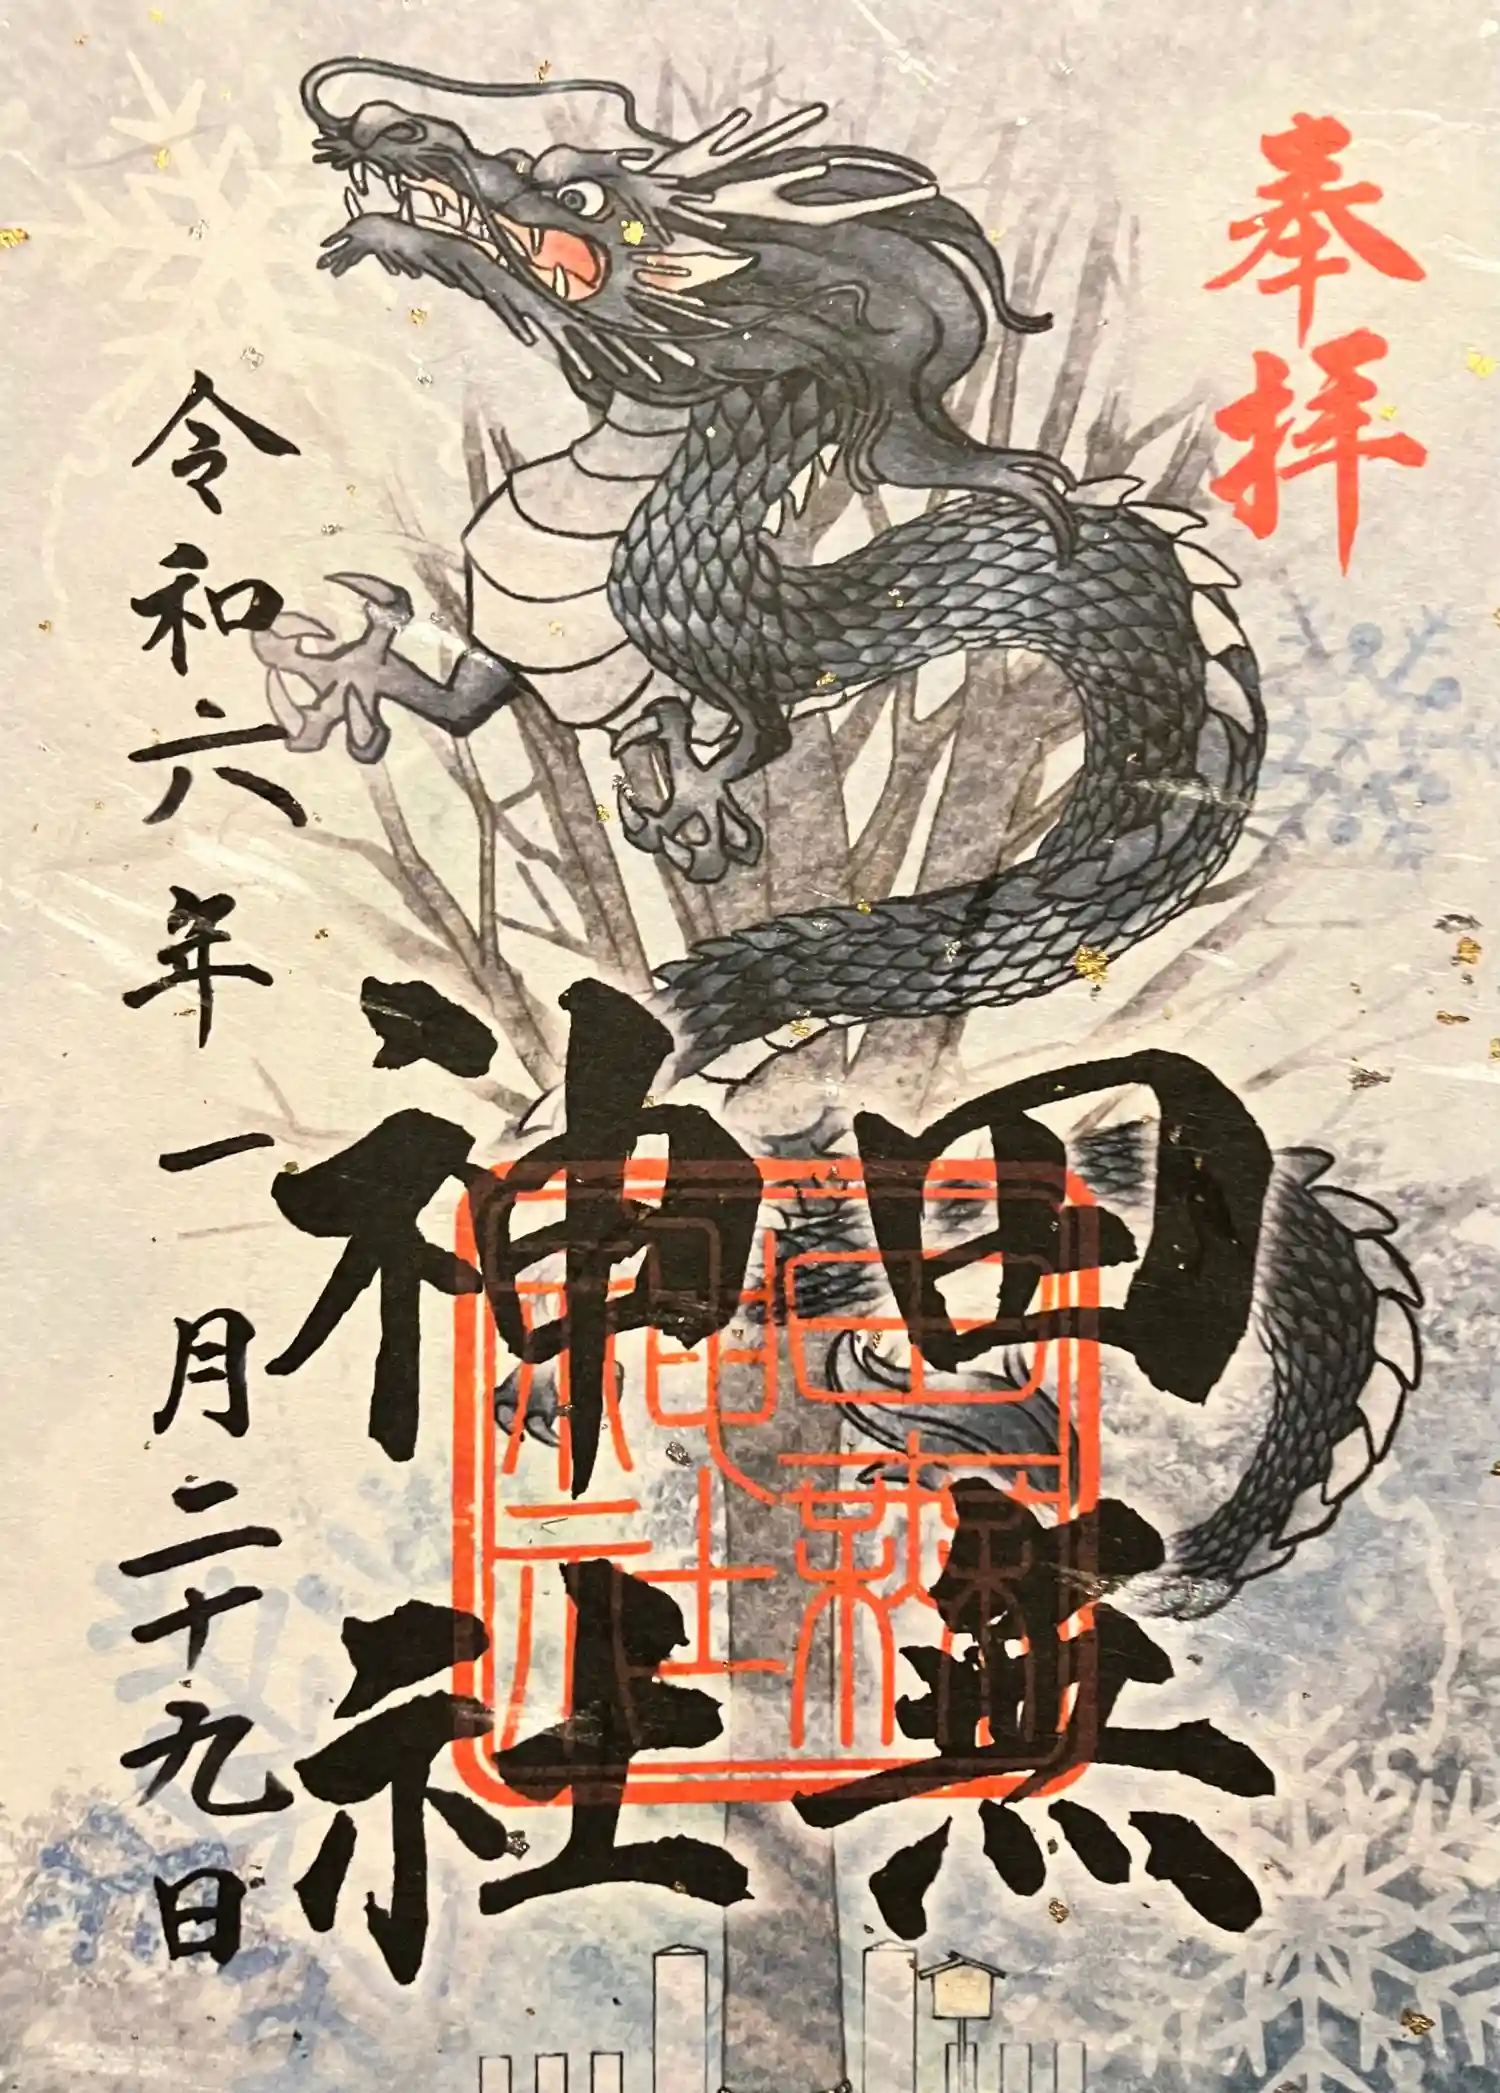 奉拝
田無
神社
田無
神社
令和六年一月二十九日